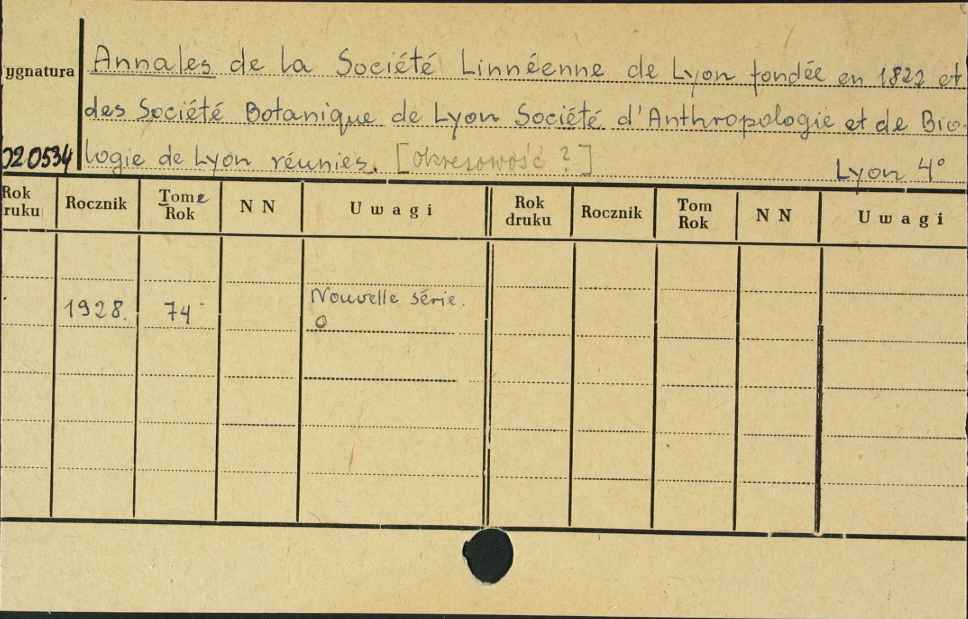 ygnatura Annales de la Société Linnéenne de Lyon fondée en 1822 et
des Société Botanique de Lyon Société d'Anthropologie et de Bio-
020534 logie de Lyon réunies. [Okresowość ?]
Lyon 4°
Rok ruku Rocznik Tome Rok N N Uwagi Rok druku Rocznik Tom Rok N N Uwagi
1928. 74 Nouvelle série.
O